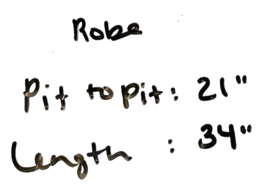 Robe
Pit to pit: 21"
Length : 34"